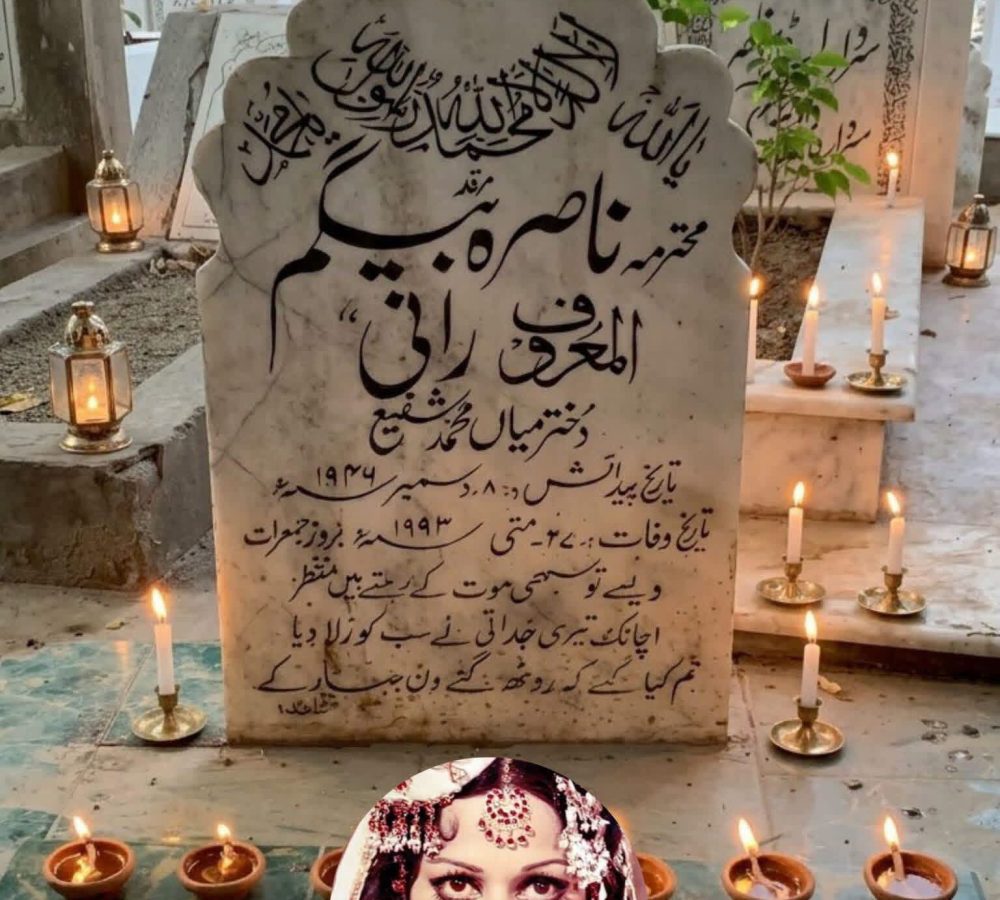 یا اللہ
لا الہ الا اللہ محمد رسول اللہ
یا محمد
مرقد
محترمہ ناصرہ بیگم
المعروف رانی "
دختر میاں محمد شفیع
تاریخ پیدائش :۔ ۸ دسمبر ۱۹۴۶ء
تاریخ وفات :۔ ۲۷۔ مئی ۱۹۹۳ء بروز جمعرات
ویسے تو سبھی موت کے رہتے ہیں منتظر
اچانک تیری جدائی نے سب کو رلا دیا
تم کیا گئے کہ روٹھ گئے دن بہار کے